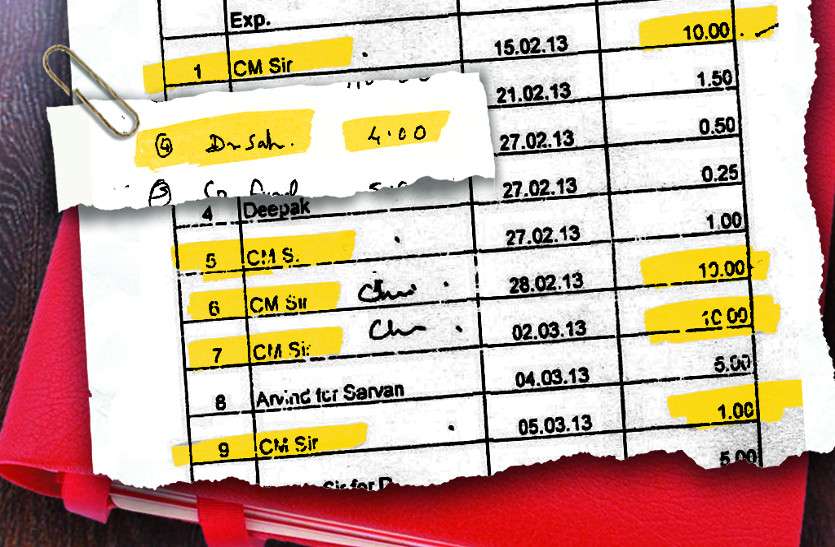 Exp.
1 CM Sir 15.02.13 10.00
21.02.13 1.50
④ Dr Sah. 4.00
27.02.13 0.50
4 Deepak 27.02.13 0.25
5 CM S. 27.02.13 1.00
6 CM Sir 28.02.13 10.00
7 CM Sir 02.03.13 10.00
8 Arvind for Sarvan 04.03.13 5.00
9 CM Sir 05.03.13 1.00
Sir for 5.00